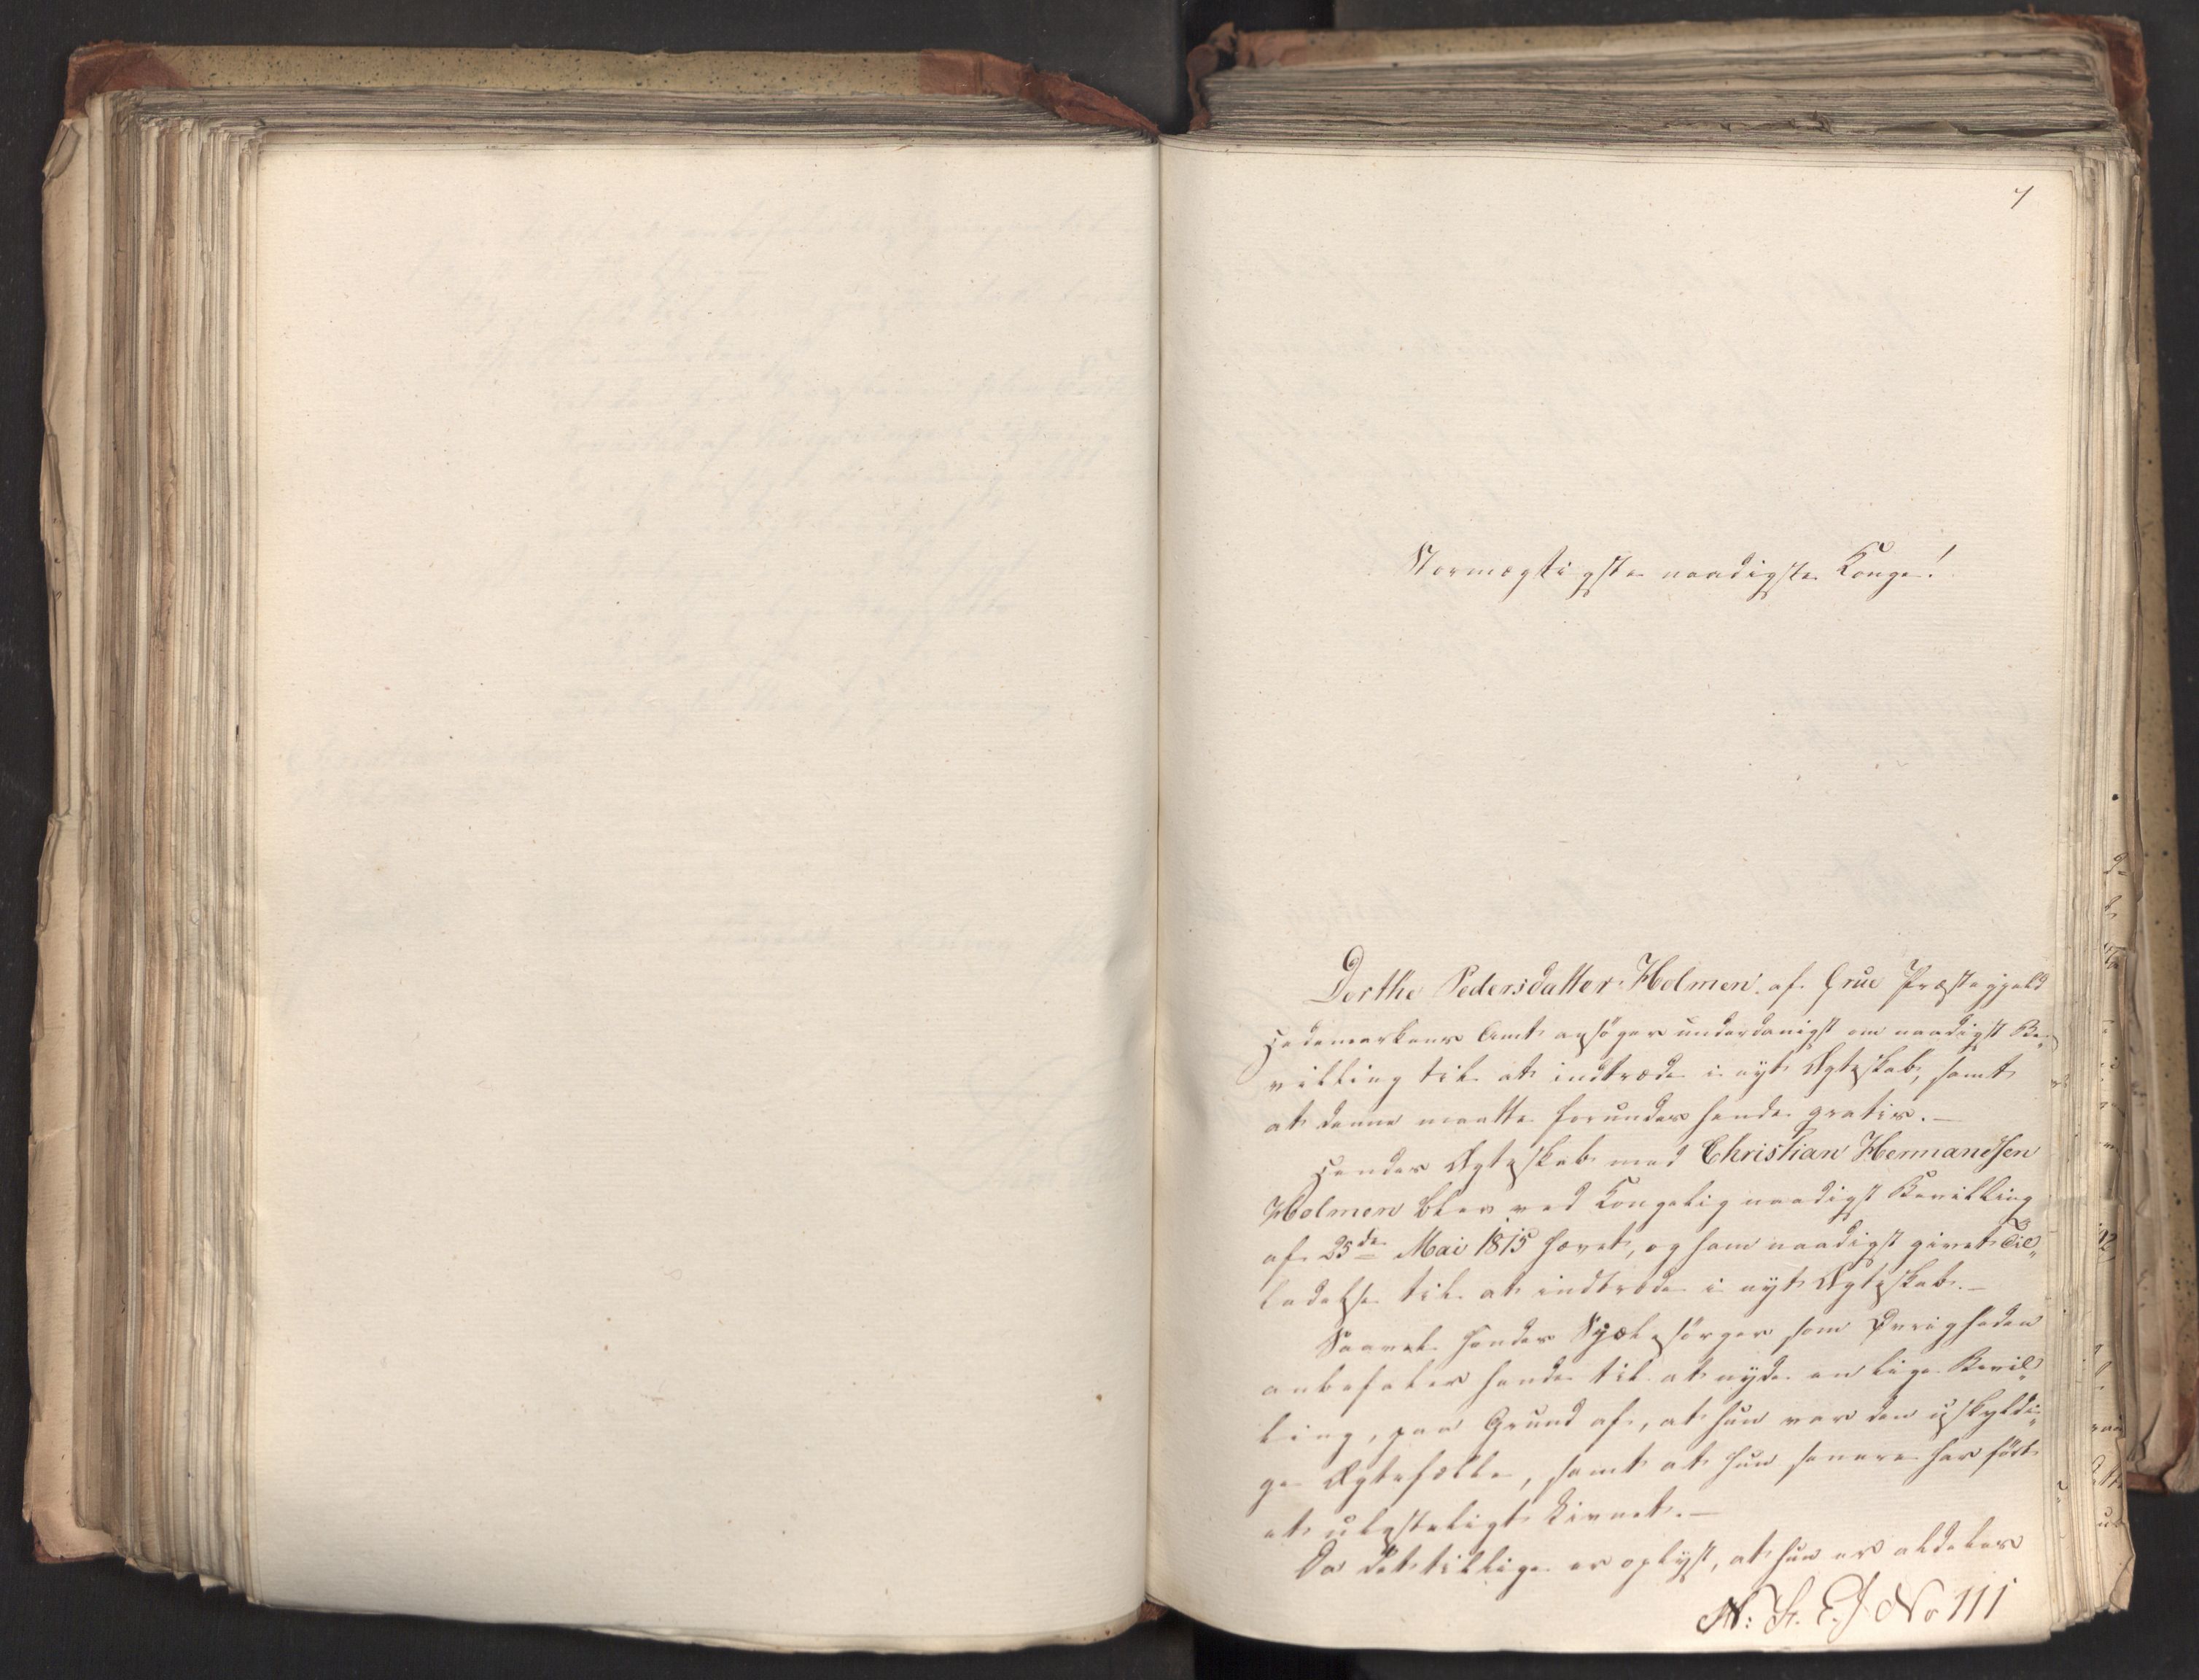 7
Stormægtigste naadigste Konge!
Dorthe Pedersdatter Holmen af Grue Præstegjeld
Hedemarkens Amt ansøger underdanigst om naadigst Be„
villing til at indtræde i nyt Ægteskab, samt
at denne maatte forundes hende gratis.—
Hendes Ægteskab med Christian Hermandsen
Holmen blev ved Kongelig naadigst Bevilling
af 25de Mai 1815 hævet, og ham naadigst givet Til„
ladelse til at indtræde i nyt Ægteskab.—
Saavel hendes Sjælesørger som Øvrigheden
anbefaler hende til at nyde en lige Bevil„
ling, paa Grund af, at hun var den uskyldi„
ge Ægtefælle, samt at hun senere har ført
et ulasteligt Levnet.—
Da det tillige er oplyst, at hun er aldeles
N: St. E. J No 111